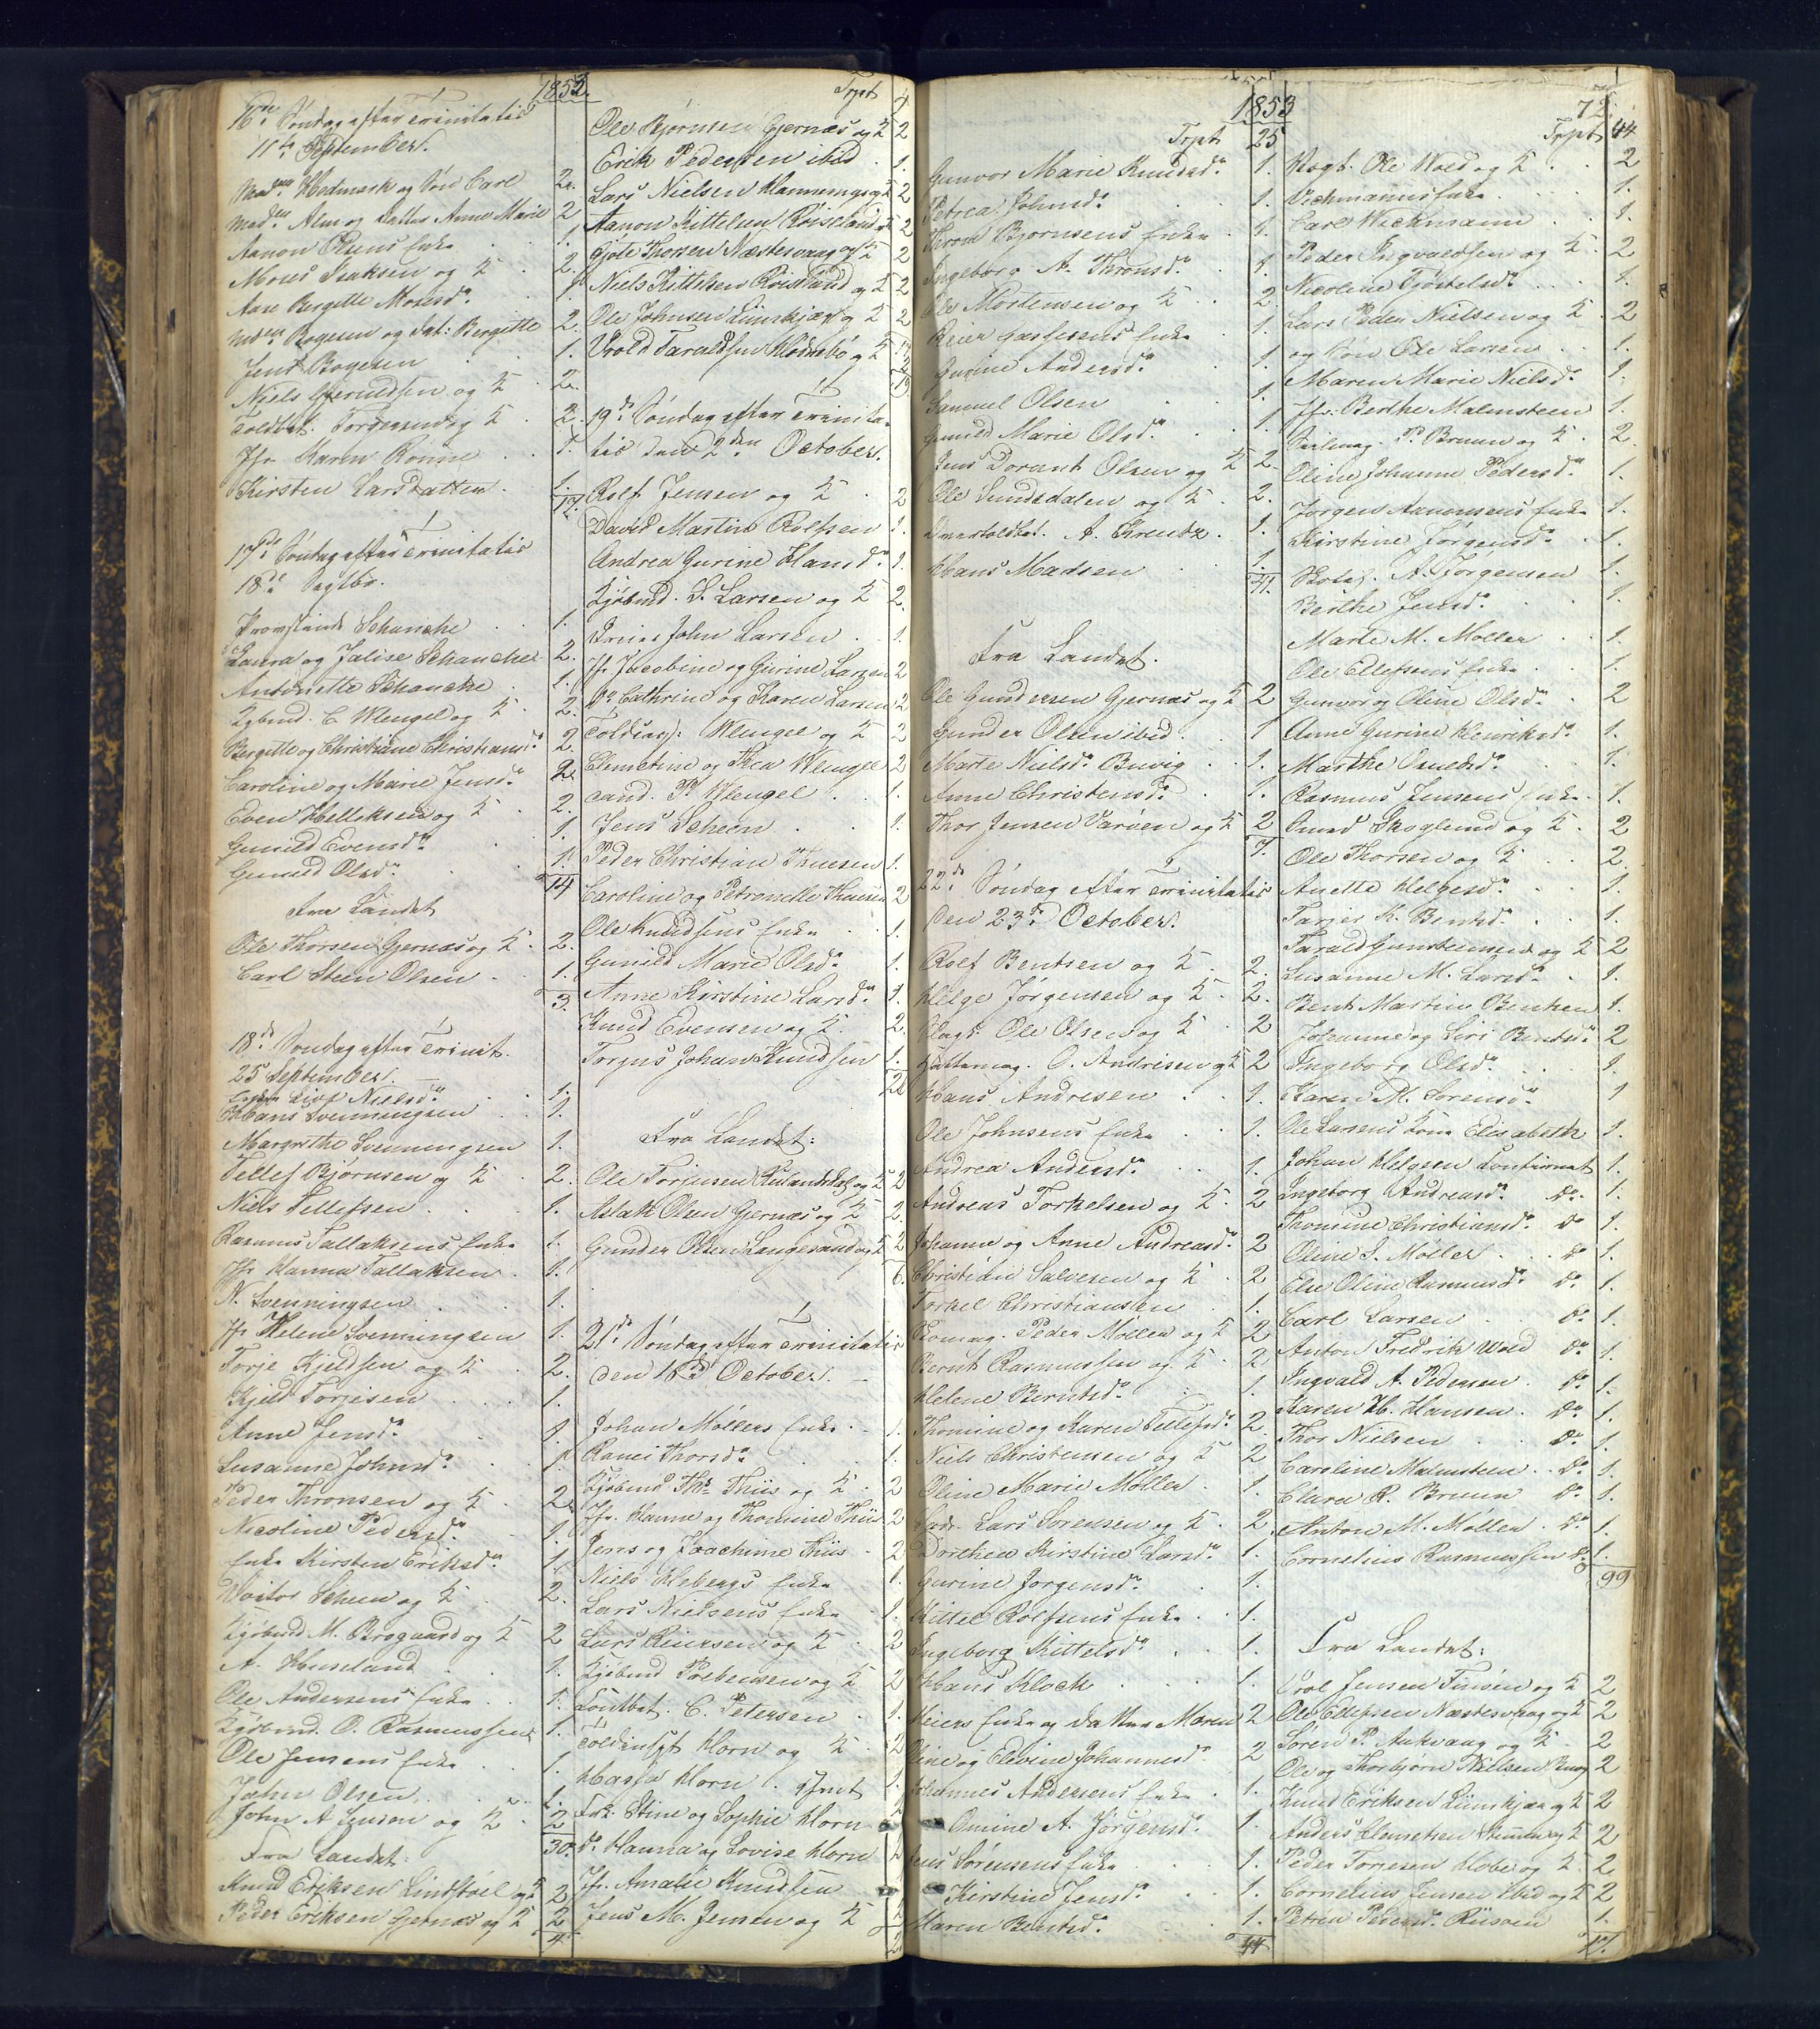 1853.
16de Søndag efter Trinitatis
11te September.
Madme Hedmark og Søn Carl 2.
Madme Alm og Datter Anne Marie 2
Aanon Olsens Enke 1.
Moses Isaksen og K 2.
Aase Bergitte Mosesdr 1
Mdm Bogesen og Dat: Bergitte 2.
Jens Bogesen 1.
Niels Gjerudsen og K 2.
Toldbet. Torgersen og K 2.
Jfr Karen Rønne 1.
Kirsten Larsdatter 1.
17.
17de Søndag efter Trinitatis
18de Septbr.
Provstinde Schanche 1.
Laura og Jalise Schanche 2.
Antonette Schanche 1.
Kjbmd. C Wengel og K 2.
Bergitte og Christiane Christiansdr 2.
Caroline og Marie Jensdr 2.
Even Hellesen og K 2.
Gunild Evensdr 1.
Gunild Olsdr 1.
14
Fra Landet
Ole Thorsen Gjernæs og K 2.
Carl Steen Olsen 1.
3.
18de Søndag efter Trinit.
25 September.
Nielsdr 1.
Hans Svenningsen 1.
Margrethe Svenningsen 1.
Tellef Bjørnsen og K 2.
Niels Tellefsen 1.
Rasmus Tallaksens Enke 1.
Jfr Hanna Tallaksen 1.
N. Svenningsen 1.
Jfr Helene Svenningsen 1.
Torje Kjeldsen og K 2.
Kjeld Torjesen 1.
Anne Jensdr 1.
Susanne Johnsdr 1
Peder Thronsen og K 2.
Nicoline Pedersdr 1.
Enke Kirsten Eriksdr 1
Woitor Scheen og K 2.
Kjøbmd M. Brogaard og K 2
A. Huseland 1.
Ole Andersens Enke 1.
Kjøbmd. O. Rasmussen 1.
Ole Jensens Enke 1.
John Olsen 1.
John A Jensen og K 2
30.
Fra Landet:
Knud Eriksen Lindstøel og K 2
Peder Eriksen Gjernæs og K 2
4
Trpt 4
Ole Bjørnsen Gjernæs og K 2
Erik Pedersen ibid 1.
Lars Nielsen Hanninge og K 2
Aanon Kittelsen Røiseland og K 2
Gjøle Thorsen Næstesvaag og K 2
Niels Kittelsen Røiseland og K 2
Ole Johnsen Liinskjær og K 2
Vrold Taraldsen Hødnebø og K 2
19
19de Søndag efter Trinita-
tis den 2den October.
Rolf Jensen og K 2
David Martin Rolfsen 1.
Andrea Gurine Hansdr 1.
Kjøbmd. S. Larsen og K 2.
Drine John Larsen 1.
Jfr. Jacobine og Gurine Larsen 2
Do Cathrine og Karen Larsen 2
Toldcass: Wengel og K 2
Clemetine og Thea Wengel 2
Cand. P. Wengel 1.
Jens Scheen 1.
Peder Christian Thuesen 1.
Caroline og Petronelle Thuesen 2
Ole Knudsens Enke 1.
Gunild Marie Olsdr 1.
Anne Kirstine Larsdr 1.
Knud Evensen og K 2.
Torjus Johan Knudsen 1.
Fra Landet:
Ole Torjusen Rulandsdal og K 2
Aslak Olsen Gjernæs og K 2.
Gunder Olsen Langesand og K 2
6.
21de Søndag efter Trinitatis
den 16de October.
Johan Møllers Enke 1.
Ranei Thorsdr 1.
Kjøbmd Ths Thiis og K 2
Jfr. Hanne og Thomine Thiis 2
Jens og Joachime Thiis 2
Niels Hebergs Enke 1.
Lars Nielsens Enke 1.
Lars Reiersen og K 2
Kjøbmd Prebensen og K 2
Toldbet. C. Petersen 1.
Toldinspt Horn og K 2
Hassa Horn 1.
Frk: Stine og Sophie Horn 2
do Hanna og Lovise Horn 2
Jfr. Amalie Knudsen
Jens M. Jensen og K
1853
72
Trpt 25
Gunvor Marie Knudsdr 1.
Petrea Johnsdr 1.
Thron Bjørnsens Enke 1.
Ingeborg A. Thronsdr 1.
Ole Mortensen og K 2.
Reier Gasfersens Enke 1.
Gurine Andersdr 1
Samuel Olsen 1.
Gunild Marie Olsdr 1
Jens Dorant Olsen og K 2.
Ole Sundsdalen og K 2.
Overtoldbet. A. Krentz 1.
Hans Madsen 1.
41.
Fra Landet.
Ole Gundersen Gjernæs og K 2
Gunder Olsen ibid 1
Marte Nielsdr Buvig 1.
Anne Christensdr 1.
Thor Jensen Varøen og K 2
7.
22de Søndag efter Trinitatis
den 23de October.
Rolf Bentsen og K 2.
Helge Jørgensen og K 2.
Ole Olsen og K 2
Hattemag. O. Andresen og K 2
Hans Andresen 1.
Ole Johnsens Enke 1.
Andrea Andersdr 1.
Andreas Torkelsen og K 2
Johanne og Anne Andreasdr 2
Christian Salvesen og K 2
Torkel Christiansen 1.
Skomag. Peder Møller og K 2
Bernt Rasmussen og K 2
Helene Berntsdr 1
Thomine og Karen Tellefsdr 2
Niels Christensen og K 2
Oline Marie Møller 1.
Lars Sørensen og K 2
Dorthea Kirstine Larsdr 1.
Gurine Jørgensdr 1.
Kittel Rolfsens Enke 1.
Ingeborg Kittelsdr 1.
Hans Klock 1.
Reiers Enke og datter Maren 2
Oline og Elevine Johannesdr 2
Johannes Andersens Enke 1.
Omine A. Jørgensdr 1.
Jens Sørensens Enke 1.
Kirstine Jensdr 1.
Maren Bentsdr 1.
44
Trpt 44
Vogt. Ole Wold og K 2
Wichmanns Enke 1.
Carl Wichmann 1.
Peder Ingvaldsen og K 2
Nicoline Tjøstelsdr 1.
Lars Peder Nielsen og K 2
og Søn Ole Larsen 1.
Maren Marie Nielsdr 1.
Jfr. Berthe Malmsteen 1.
Seilmag. P. Bruun og K 2.
Oline Johanne Pedersdr 1.
Jørgen Aanonsens Enke 1.
Kirstine Jørgensdr 1.
A. Jørgensen 1.
Berthe Jensdr 1.
Marte M. Møller 1.
Ole Ellefsens Enke 1.
Gunvor og Oline Olsdr 2
Anne Gurine Henriksdr 1.
Marthe Osuldsdr 1.
Rasmus Jensens Enke 1.
Amund Skoglund og K 2
Ole Thorsen og K 2.
Anette Helgesdr 1.
Tarjer K. Bentsdr 1.
Tarald Gunsteinsen og K 2
Susanne M. Larsdr 1.
Bent Martin Bentsen 1
Johanne og Siri Bentsdr 2
Ingeborg Olsdr 1.
Karen M. Sørensdr 1
Ole Larsens Kone Elisabeth 1.
Johan Helgesen Confirmat 1.
Ingeborg Andreasdr Do 1.
Thomine Christiansdr Do 1.
Oline S. Møller Do 1.
Else Oline Rasmusdr Do 1.
Carl Larsen Do 1.
Anton Fredrik Wold Do 1.
Ingvald A. Pedersen Do 1.
Karen H. Hansen Do 1.
Thor Nielsen Do 1.
Caroline Malmsteen Do 1.
Clara R. Bruun Do 1.
Anton M. Møller Do 1.
Cornelius Rasmussen Do 1.
99
Fra Landet:
Vrol Jensen Finøen og K 2
Ole Ellefsen Næstesvaag og K 2
Søren P. Aukvaag og K 2
Ole og Thorbjørn Nielsen Buvig 2
Knud Eriksen Liinskjær og K 2
Anders Clemetsen Steinen og K 2
Peder Torjesen Hobe og K 2
Cornelius Jensen ibid og K 2
Petrea Pedersdr Riisøen 1.
17.